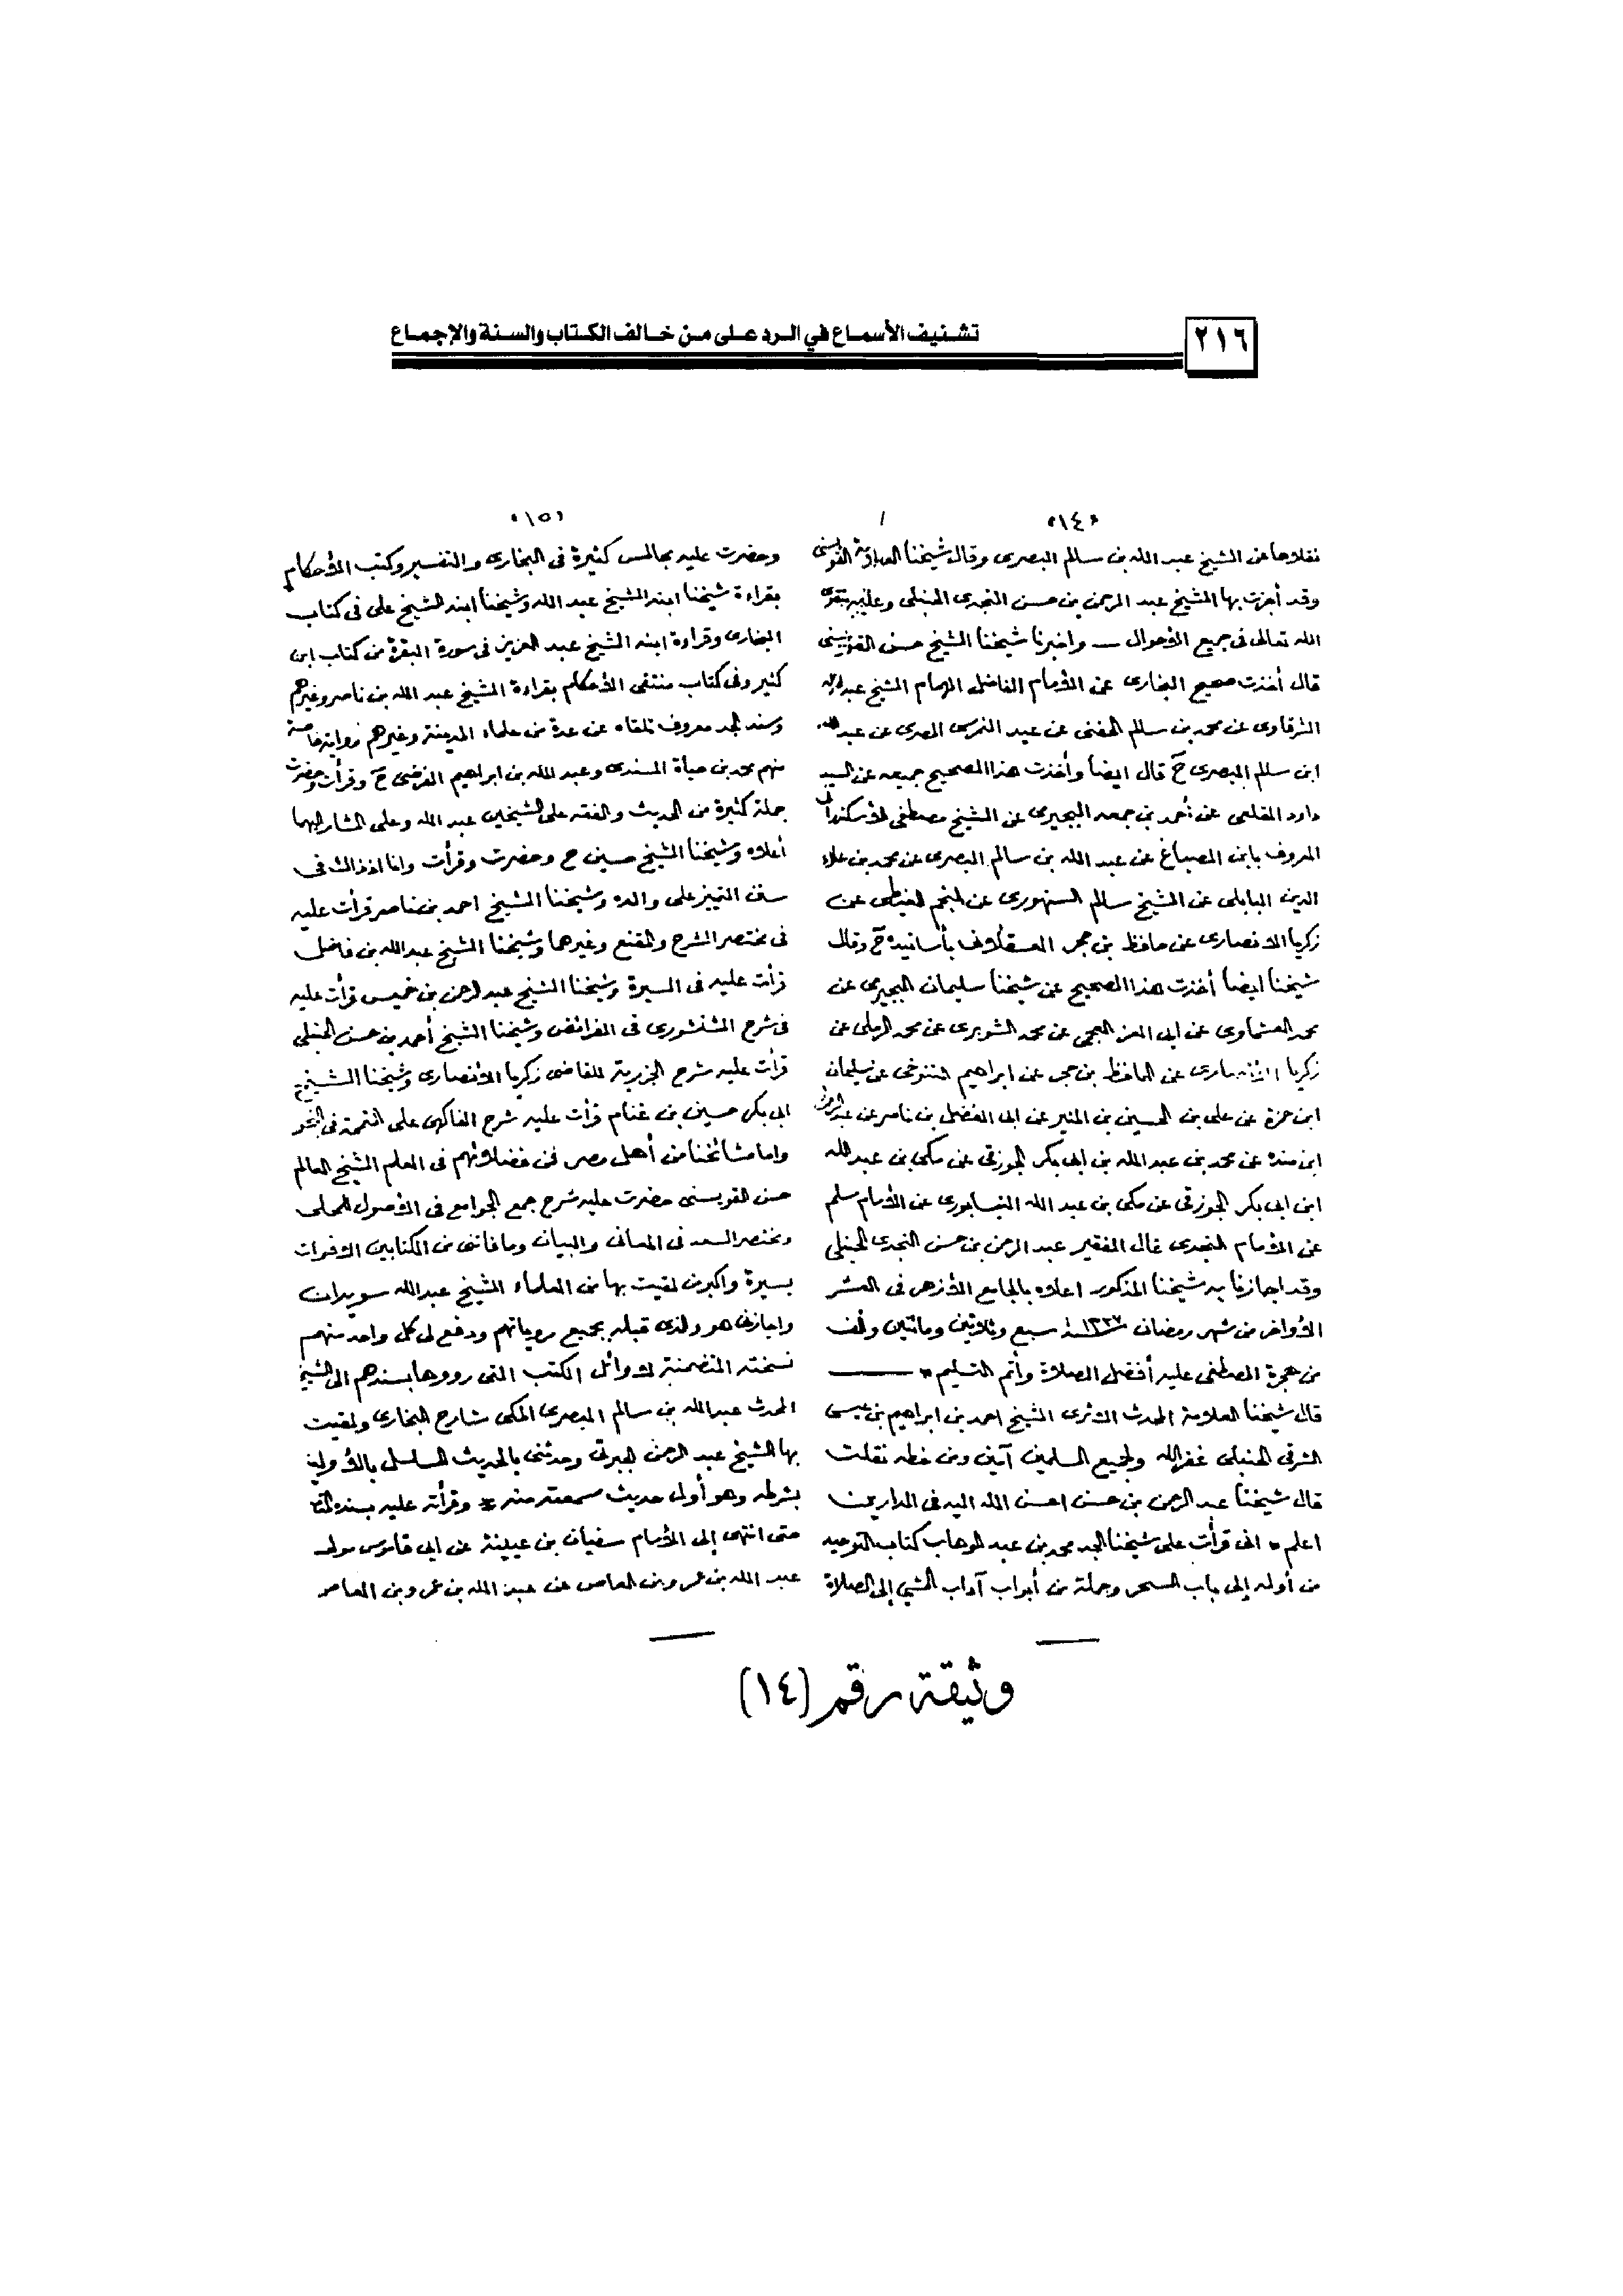 ٢١٦
تشنيف الأسماع في الرد على من خالف الكتاب والسنة والإجماع
«١٤»
نقلاها عن الشيخ عبد الله بن سالم البصرى وقال شيخنا القويسنى
وقد أجزت بها الشيخ عبد الرحمن بن حسن النجدى الحنبلى وعليه بتقوى
الله تعالى فى جميع الأحوال — واخبرنا شيخنا الشيخ حسن القويسنى
قال أخذت صحيح البخارى عن الأمام الفاضل الهمام الشيخ عبد الله
الشرقاوى عن محمد بن سالم الحفنى عن عيد النمرسى المصرى عن عبد الله
ابن سالم البصرى ح قال ايضا وأخذت هذا الصحيح جميعه عن السيد
داود القلعى عن أحمد بن جمعه البجيرى عن الشيخ مصطفى الأسكندرانى
المعروف بابن الصباغ عن عبد الله بن سالم البصرى عن محمد بن علاء
الدين البابلى عن الشيخ سالم السنهورى عن النجم الغيطى عن
زكريا الأنصارى عن حافظ بن حجر العسقلانى بأسانيده ح وقال
شيخنا ايضا أخذت هذا الصحيح عن شيخنا سليمان البجيرمى عن
محمد العشماوى عن ابى العز العجمى عن محمد الشوبرى عن محمد الرملى عن
زكريا الأنصارى عن الحافظ بن حجر عن ابراهيم التنوخى عن سليمان
ابن حمزة عن على بن الحسين بن المنير عن ابى الفضل بن ناصر عن عبد الرحمن
ابن منده عن محمد بن عبد الله بن ابى بكر الجوزقى عن مكى بن عبد الله
ابن ابى بكر الجوزقى عن مكى بن عبد الله النيسابورى عن الأمام مسلم
عن الأمام قال الفقير عبد الرحمن بن حسن النجدى الحنبلى
وقد اجازنا به شيخنا المذكور اعلاه بالجامع الأزهر فى العشر
الأواخر من شهر رمضان سنة ١٢٣٧ سبع وثلاثين ومائتين وألف
من هجرة المصطفى عليه أفضل الصلاة وأتم التسليم *
قال شيخنا العلامة المحدث الأثرى الشيخ احمد بن ابراهيم بن عيسى
الشرقى الحنبلى غفر الله ولجميع المسلمين آمين ومن خطه نقلت
قال شيخنا عبد الرحمن بن حسن احسن الله اليه فى الدارين
اعلم * انى قرأت على شيخنا الجد محمد بن عبد الوهاب كتاب التوحيد
من أوله إلى باب السحر وجملة من أبواب آداب المشى إلى الصلاة
«١٥»
وحضرت عليه مجالس كثيرة فى البخارى والتفسير وكتب الأحكام
بقراءة شيخنا ابنه الشيخ عبد الله وشيخنا ابنه الشيخ على فى كتاب
البخارى وقراءة ابنه الشيخ عبد العزيز فى سورة البقرة من كتاب ابن
كثير وفى كتاب منتقى الأحكام بقراءة الشيخ عبد الله بن ناصر وغيرهم
وسند الجد معروف تلقاه عن عدة من علماء المدينة وغيرهم رواية خاصة
منهم محمد بن حياة السندى وعبد الله بن ابراهيم الفرضى ح وقرأت وحضرت
جملة كثيرة من الحديث والفقه على الشيخين عبد الله وعلى المشار اليهما
أعلاه وشيخنا الشيخ حسين ح وحضرت وقرأت وانا اذ ذاك فى
سن التمييز على والده وشيخنا الشيخ احمد بن ناصر قرأت عليه
فى مختصر الشرح والمقنع وغيرها وشيخنا الشيخ عبد الله بن فاضل
قرأت عليه فى السيرة وشيخنا الشيخ عبد الرحمن بن خميس قرأت عليه
فى شرح الشنشورى فى الفرائض وشيخنا الشيخ أحمد بن حسن الحنبلى
قرأت عليه شرح الجزرية للقاضى زكريا الأنصارى وشيخنا الشيخ
ابى بكر حسين بن غنام قرأت عليه شرح الفاكهى على المتممة فى النحو
واما مشائخنا من أهل مصر فمن فضلائهم فى العلم الشيخ العالم
حسن القويسنى حضرت عليه شرح جمع الجوامع فى الأصول للمحلى
ومختصر السعد فى المعانى والبيان وما فاتنى من الكتابين الا فوات
يسيرة واكبر من لقيت بها من العلماء الشيخ عبد الله سويدان
واجازنى هو والذى قبله بجميع مروياتهم ودفع لى كل واحد منهم
نسخته المتضمنة لأوائل الكتب التى رووها بسندهم الى الشيخ
المحدث عبد الله بن سالم البصرى المكى شارح البخارى ولقيت
بها الشيخ عبد الرحمن الجبرتى وحدثنى بالحديث المسلسل بالأولية
بشرطه وهو أول حديث سمعته منه * وقرأته عليه بسنده
حتى انتهى إلى الأمام سفيان بن عيينة عن ابى قابوس مولى
عبد الله بن عمرو بن العاص عن عبد الله بن عمرو بن العاص
وثيقة رقم (١٤)